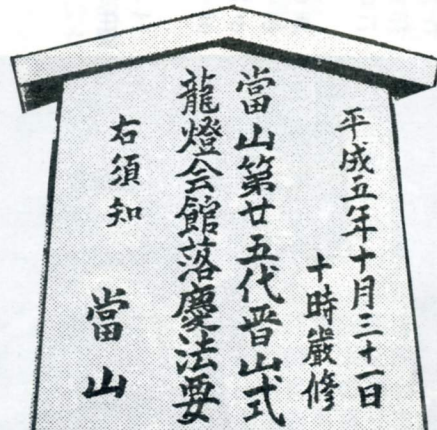 平成五年十月三十一日
十時厳修
當山第廿五代晋山式
龍燈会館落慶法要
右須知
當山